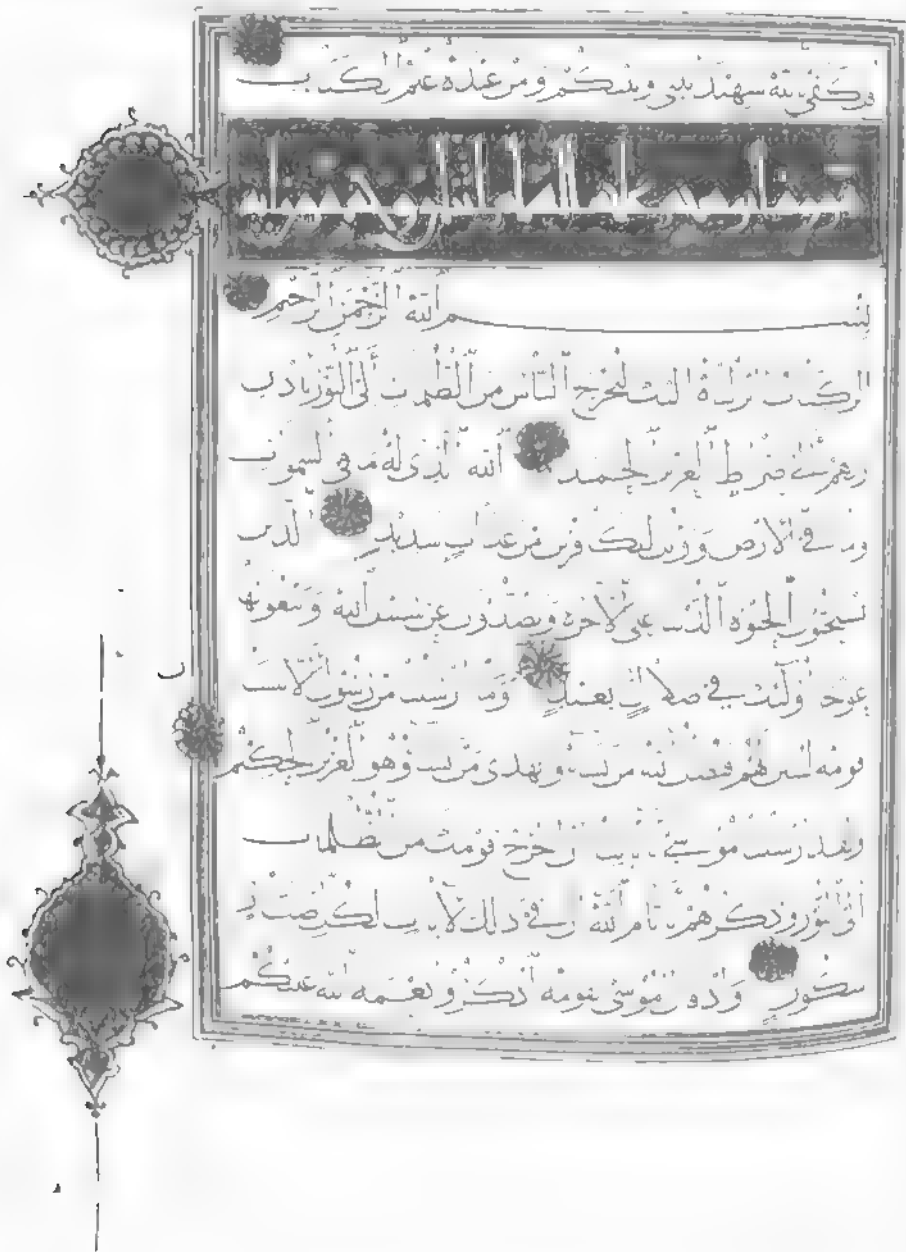 قل كفى بالله شهيدا بيني وبينكم ومن عنده علم الكتاب
بسم الله الرحمن الرحيم
الر كتاب انزلناه اليك لتخرج الناس من الظلمت الى النور باذن
ربهم الى صرط العزيز الحميد الله الذي له ما في السموت
وما في الارض وويل للكفرين من عذاب شديد الذين
يستحبون الحيوة الدنيا على الاخرة ويصدون عن سبيل الله ويبغونها
عوجا اولئك في ضلال بعيد وما ارسلنا من رسول الا بلسان
قومه ليبين لهم فيضل الله من يشاء ويهدي من يشاء وهو العزيز الحكيم
ولقد ارسلنا موسى باياتنا ان اخرج قومك من الظلمات
الى النور وذكرهم بايام الله ان في ذلك لايات لكل صبار
شكور واذ قال موسى لقومه اذكروا نعمة الله عليكم